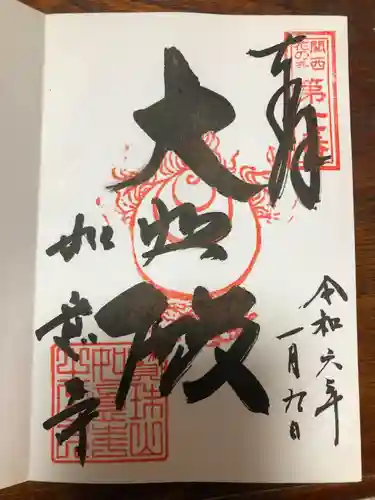 関西
花の寺
第七番
奉拝
大悲殿
如意寺
令和六年
一月九日